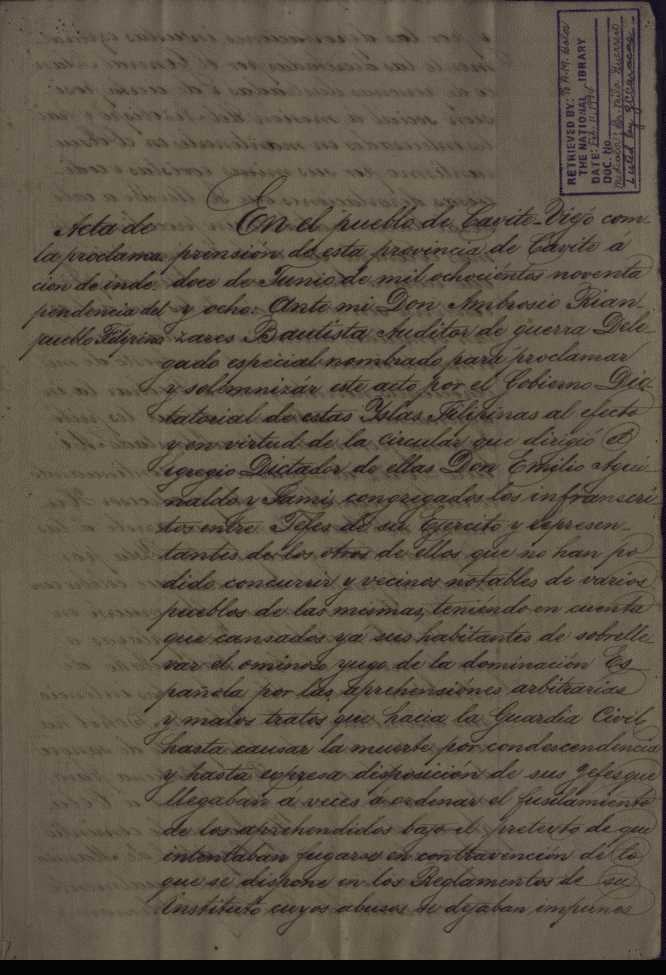 RETRIEVED BY:
THE NATIONAL LIBRARY
DATE: Feb. 11, 1996
DOC. No.
Acta de
la proclama
cion de inde
pendencia del
pueblo Filipino
En el pueblo de Cavite-Viejo com-
prensión de esta provincia de Cavite á
doce de Junio de mil ochocientos noventa
y ocho: Ante mi Don Ambrosio Rian-
zares Bautista Auditor de guerra Dele-
gado especial nombrado para proclamar
y solemnizar este acto por el Gobierno Dic-
tatorial de estas Yslas Filipinas al efecto
y en virtud de la circular que dirigió el
egregio Dictador de ellas Don Emilio Agui-
naldo y Famy, congregados los infrascri-
tos entre Jefes de su Ejercito y represen-
tantes de los otros de ellos que no han po-
dido concurrir y vecinos notables de varios
pueblos de las mismas, teniendo en cuenta
que cansados ya sus habitantes de sobrelle-
var el ominoso yugo de la dominación Es-
pañola por las aprehensiones arbitrarias
y malos tratos que hacia la Guardia Civil
hasta causar la muerte por condescendencia
y hasta expresa disposición de sus gefes que
llegaban á veces á ordenar el fusilamiento
de los aprehendidos bajo el pretexto de que
intentaban fugarse en contravención de lo
que se dispone en los Reglamentos de su
Instituto, cuyos abusos se dejaban impunes